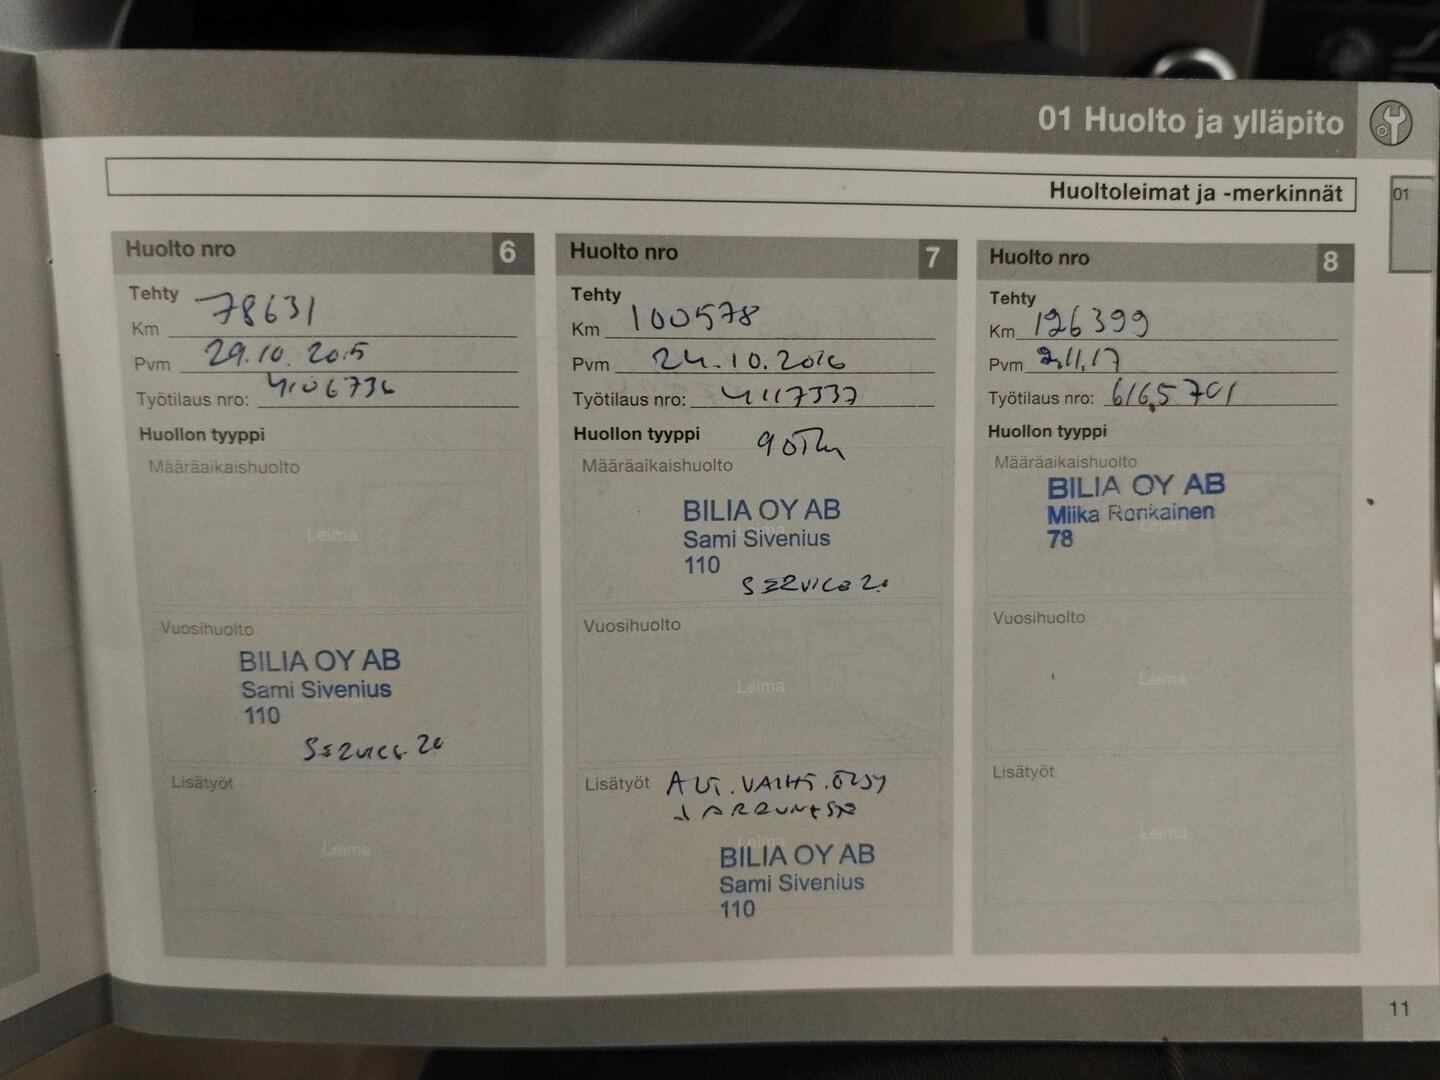 01 Huolto ja ylläpito
Huoltoleimat ja -merkinnät
01
Huolto nro 6
Tehty
Km 78631
Pvm 29.10.2015
Työtilaus nro: 4106736
Huollon tyyppi
Määräaikaishuolto
Leima
Vuosihuolto
BILIA OY AB
Sami Sivenius
110
SERVICE 2.0
Lisätyöt
Leima
Huolto nro 7
Tehty
Km 100578
Pvm 24.10.2016
Työtilaus nro: 4117337
Huollon tyyppi
90Tkm
Määräaikaishuolto
Leima
BILIA OY AB
Sami Sivenius
110
SERVICE 2.0
Vuosihuolto
Leima
Lisätyöt
Leima
BILIA OY AB
Sami Sivenius
110
Huolto nro 8
Tehty
Km 126399
Pvm 2.11.17
Työtilaus nro: 6165701
Huollon tyyppi
Määräaikaishuolto
BILIA OY AB
Miika Ronkainen
78
Leima
Vuosihuolto
Leima
Lisätyöt
Leima
11